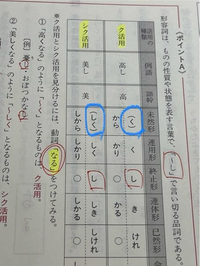 〈ポイントA〉
形容詞は、ものの性質や状態を表す言葉で、「〜し」で言い切る品詞である。
活用の種類 例語 語幹 未然形 連用形 終止形 連体形 已然形
ク活用 高し 高 (く) く し き けれ
から かり ○ かる ○
シク活用 美し 美 (しく) しく し しき しけれ
しから しかり ○ しかる ○
※ク活用とシク活用を見分けるには、動詞「なる」をつけてみる。
①「高くなる」のように「〜くなる」となるものは、ク活用。
〈例〉おぼつかな
②「美しくなる」のように「〜しくなる」となるものは、シク活用。